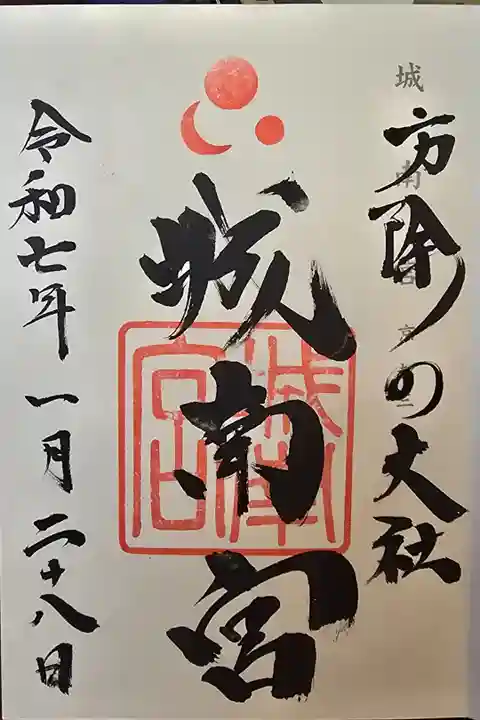 方除の大社
城南宮
城南宮
令和七年一月二十八日